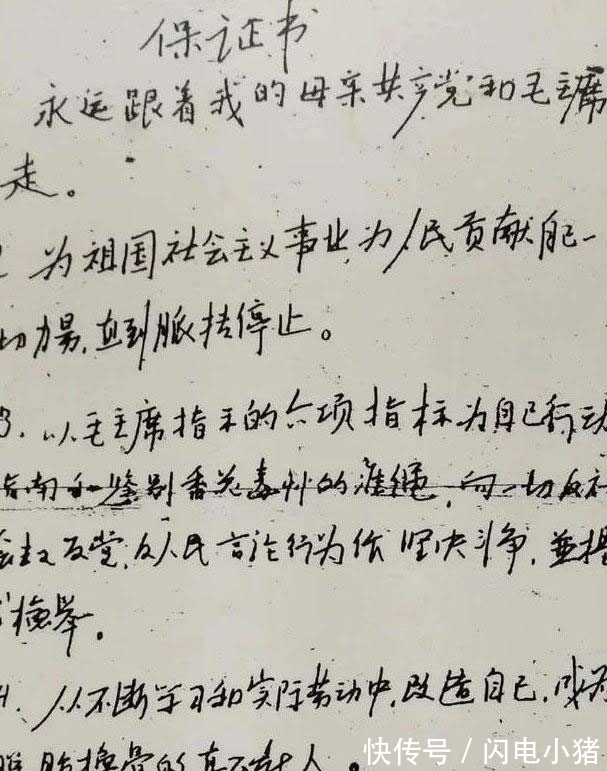 保证书
永远跟着我的母亲共产党和毛主席
走。
为祖国社会主义事业,为人民贡献自己一
切力量,直到脉搏停止。
3. 以毛主席指示的六项指标为自己行动
指南和鉴别香花毒草的准绳,向一切反社
会主义反党,反人民言论行为作坚决斗争,並揭
检举。
4. 从不断学习和实际劳动中,改造自己,成为
脱胎换骨的真正
人。
快传号 / 闪电小猪